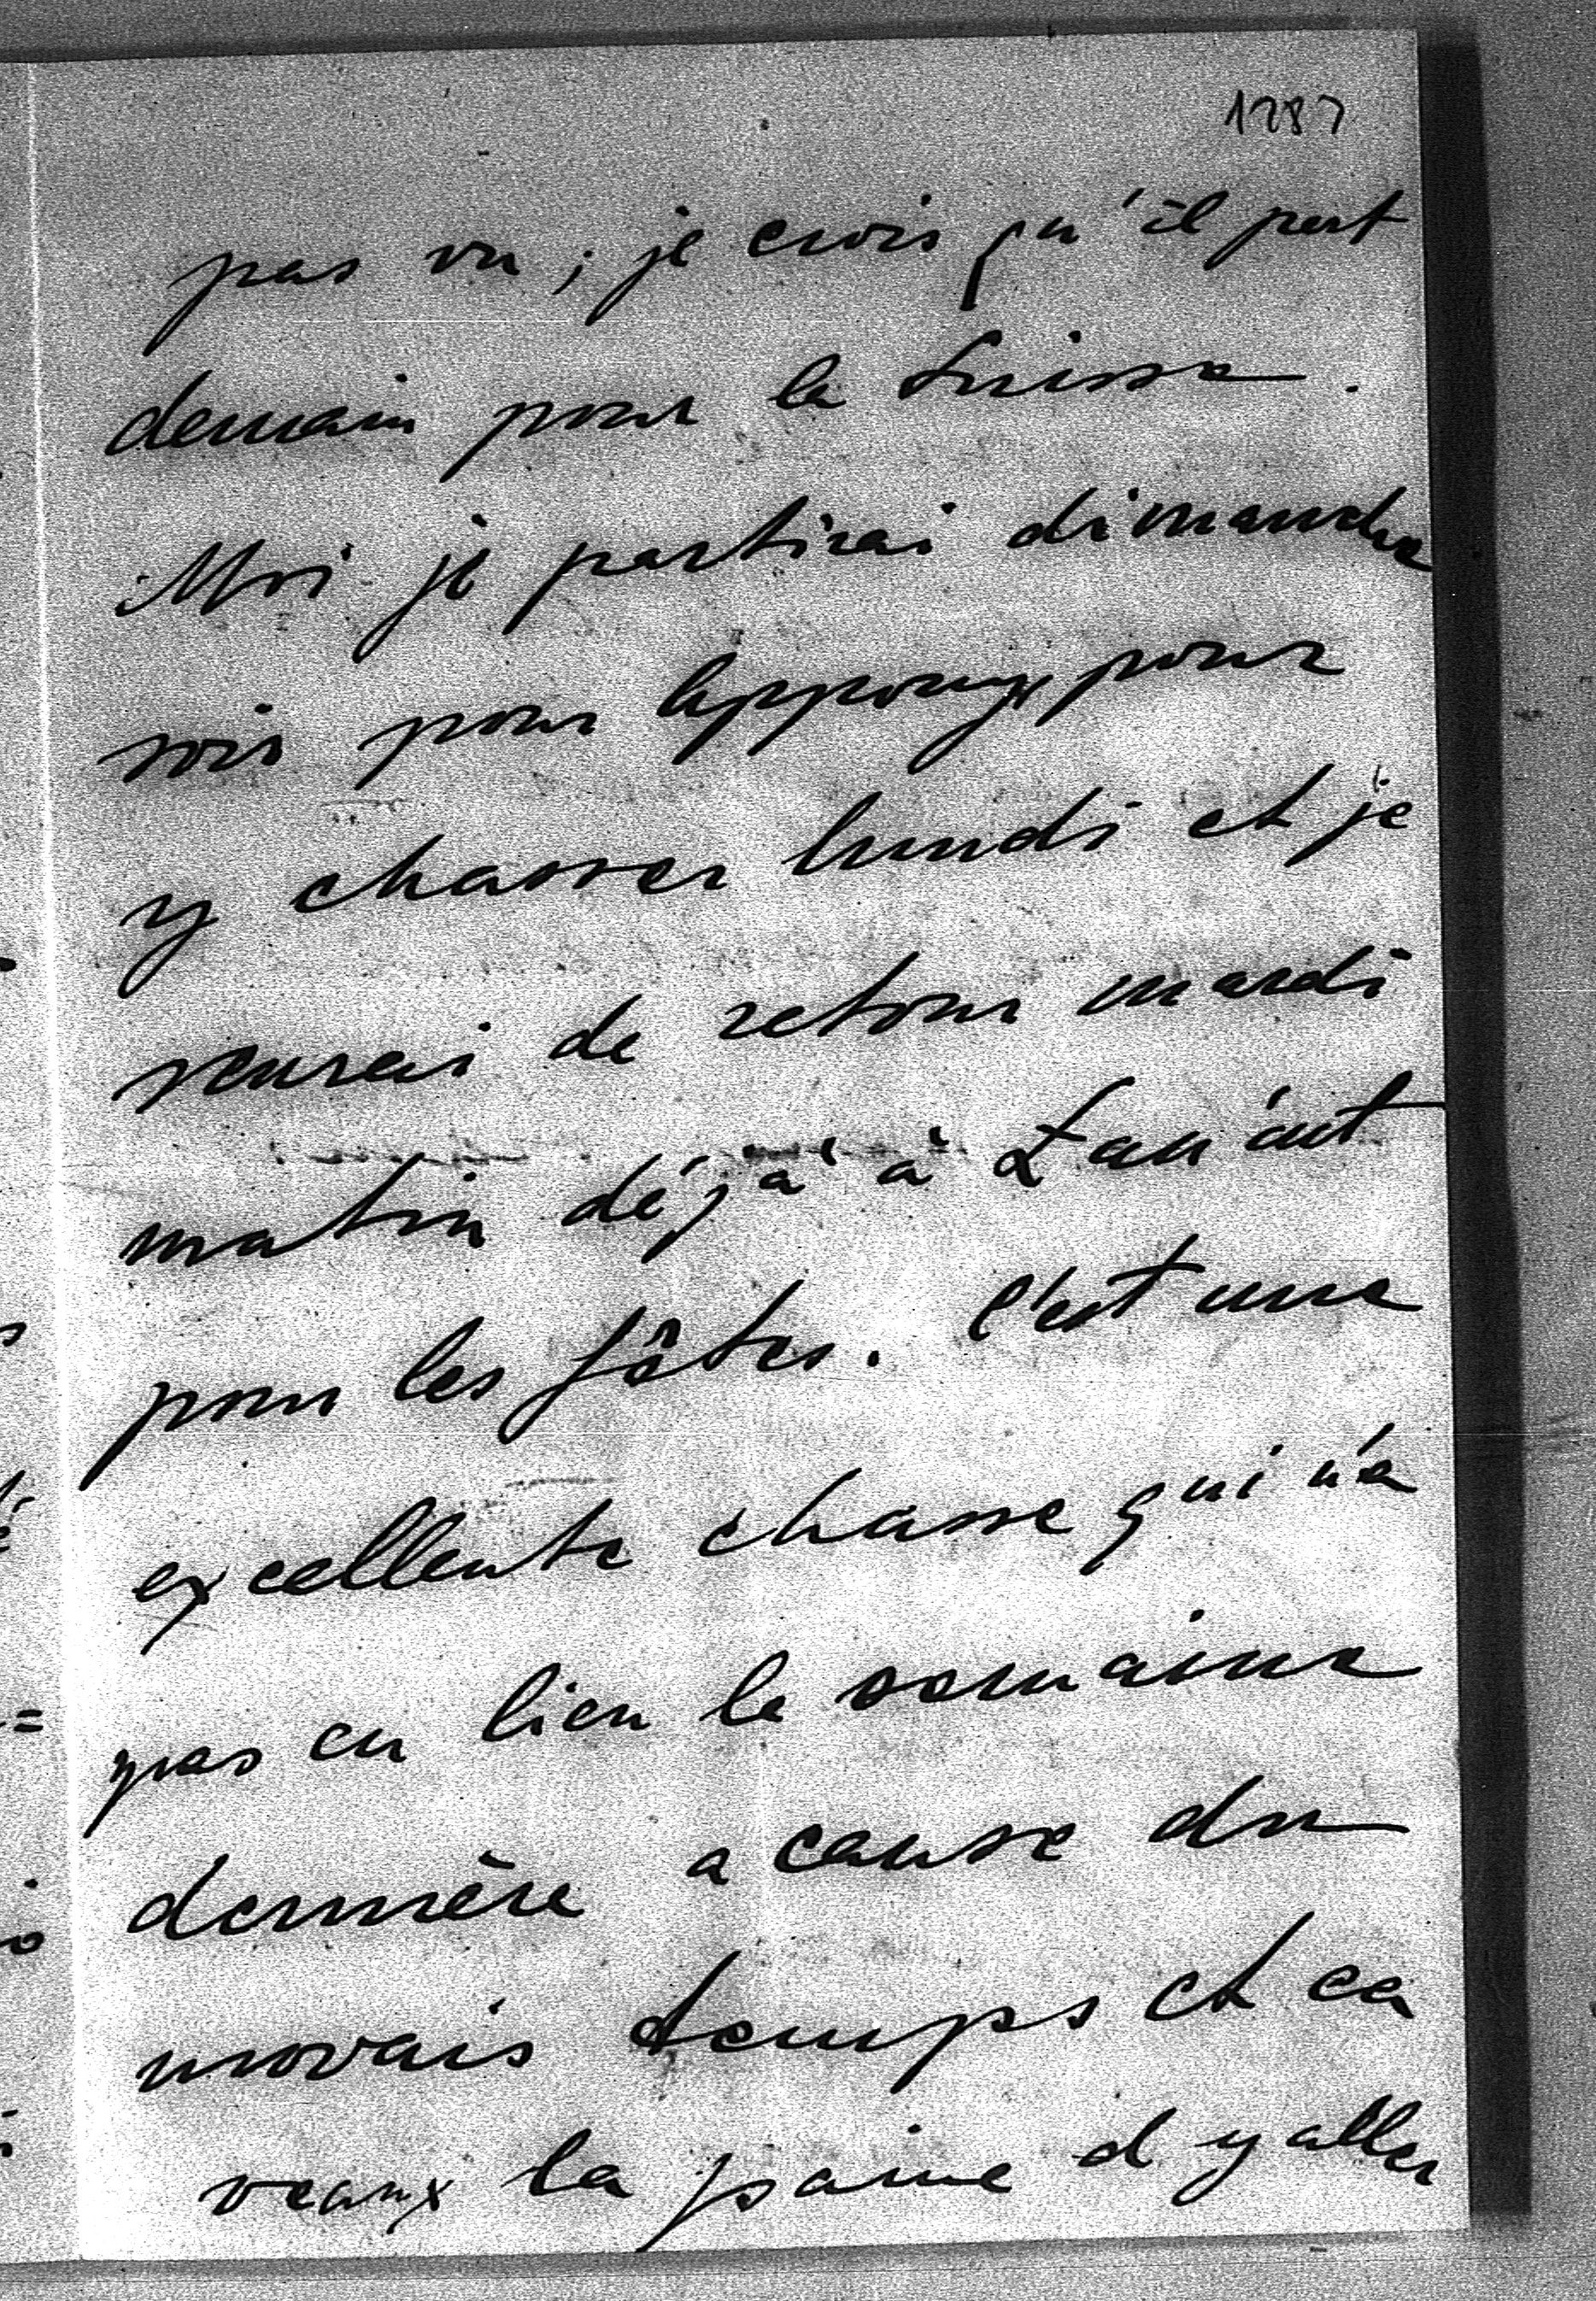 1287
pas vu ; je crois qu'il part
demain pour la Suisse.
Moi je partirai dimanche
soir pour pour
y chasser lundi et je
serai de retour mardi
matin déjà à
pour les fêtes. C'est une
excellente chasse qui n'a
pas eu lieu la semaine
dernière a cause du
movais temps et ca
veaux la paine d y aller